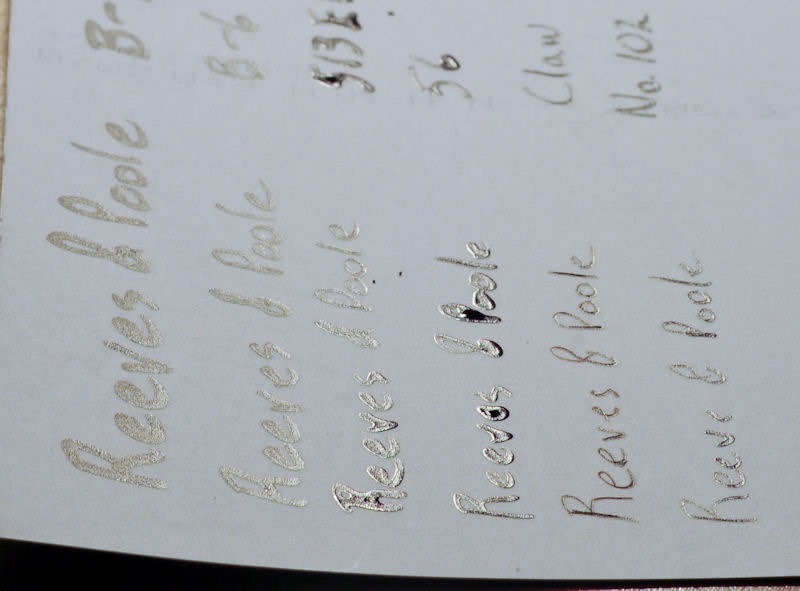 Reeves & Poole B-
Reeves & Poole B-6
Reeves & Poole 513
Reeves & Poole 56
Reeves & Poole Claw
Reeve & Poole No. 102